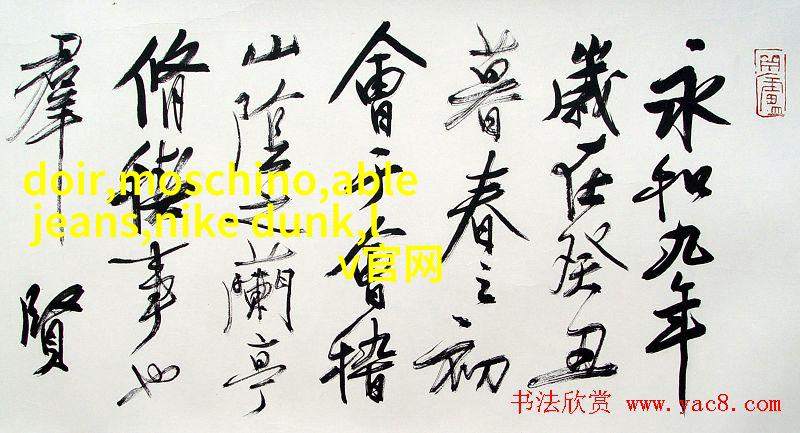 永和九年
歲在癸丑
暮春之初
會于會稽
山陰之蘭亭
脩禊事也
羣賢
doir,moschino,able
jeans,nike dunk,l
v官网
书法欣赏 www.yac8.com